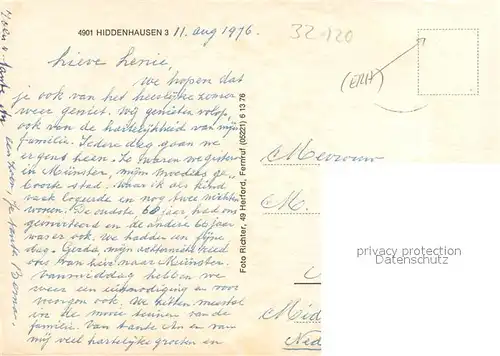 4901 HIDDENHAUSEN 3 11. aug 1976.
32-120
(ERH)
Lieve Lenie,
We hopen dat
je ook van het heerlijke zomer
weer geniet. Wij genieten volop,
ook van de hartelijkheid van mijn
familie. Iedere dag gaan we
ergens heen. Zo waren we gisteren
in Münster, mijn moeders ge-
boorte stad. Waar ik als kind
vaak logeerde en nog twee nichten
wonen. De oudste 60 jaar had ons
geinviteerd en de andere 60 jaar
was er ook. We hadden een fijne
dag. Gerda mijn reed
ons van hier naar Münster.
Vanmiddag hebben we
weer een uitnodiging en voor
morgen ook. We zitten meestal
in de mooie tuinen van de
familie. Van tante An en van
mij veel hartelijke groeten en
een zoen, je tante Berna.
Foto Richter, 49 Herford, Fernruf (05221) 6 13 76
Mevrouw
M.
Mid
Ned
privacy protection
Datenschutz